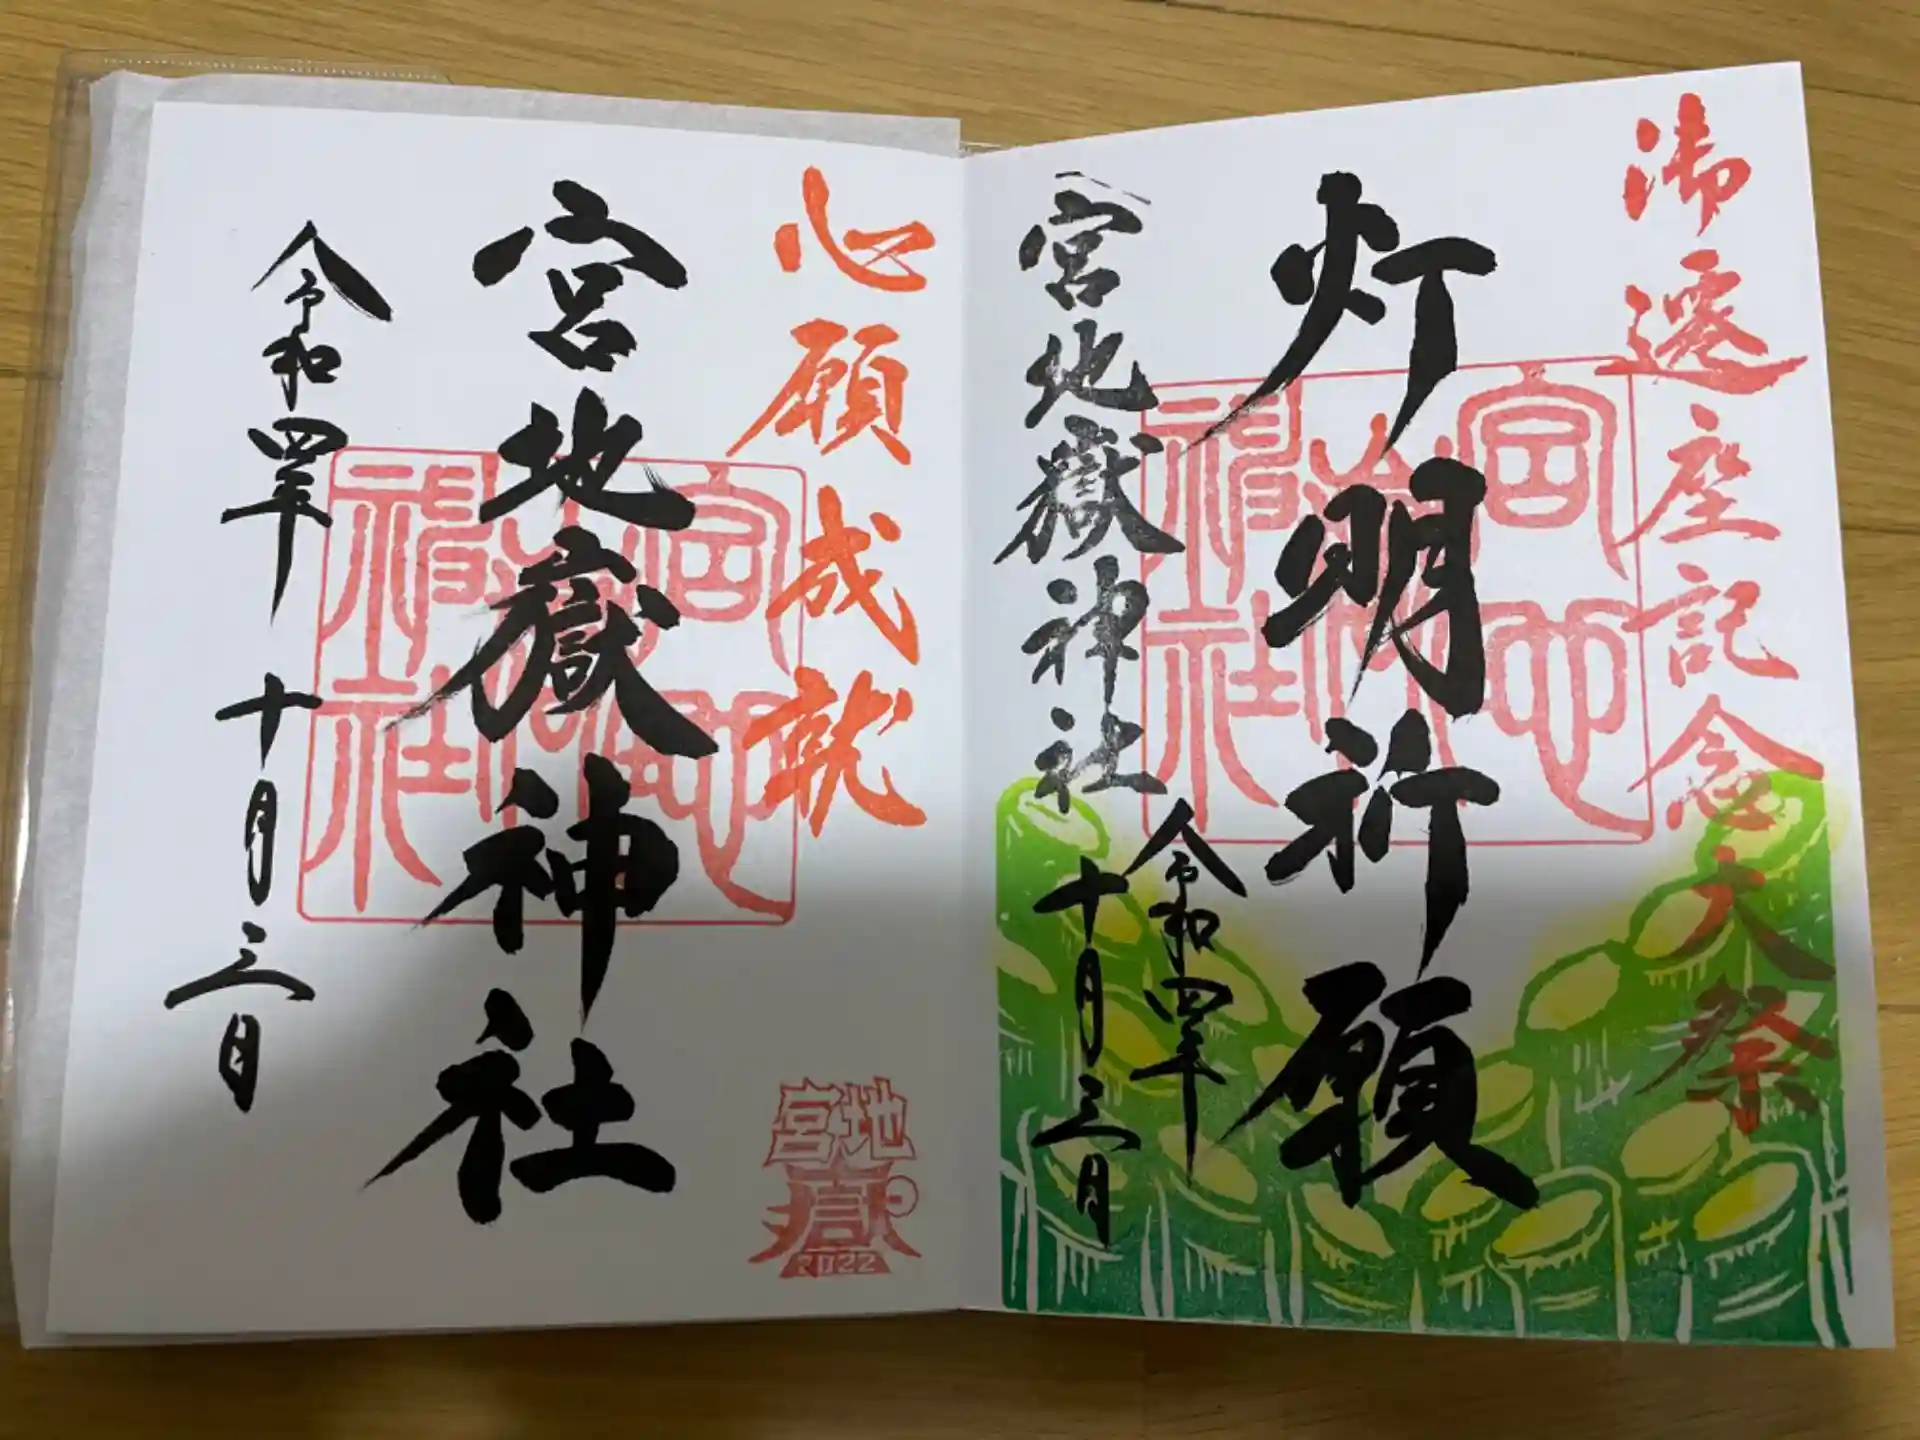 御遷座記念大祭
灯明祈願
宮地嶽神社
令和四年
十月三日
宮地嶽神社
心願成就
宮地嶽神社
令和四年 十月三日
宮地嶽神社
宮地
嶽
2022